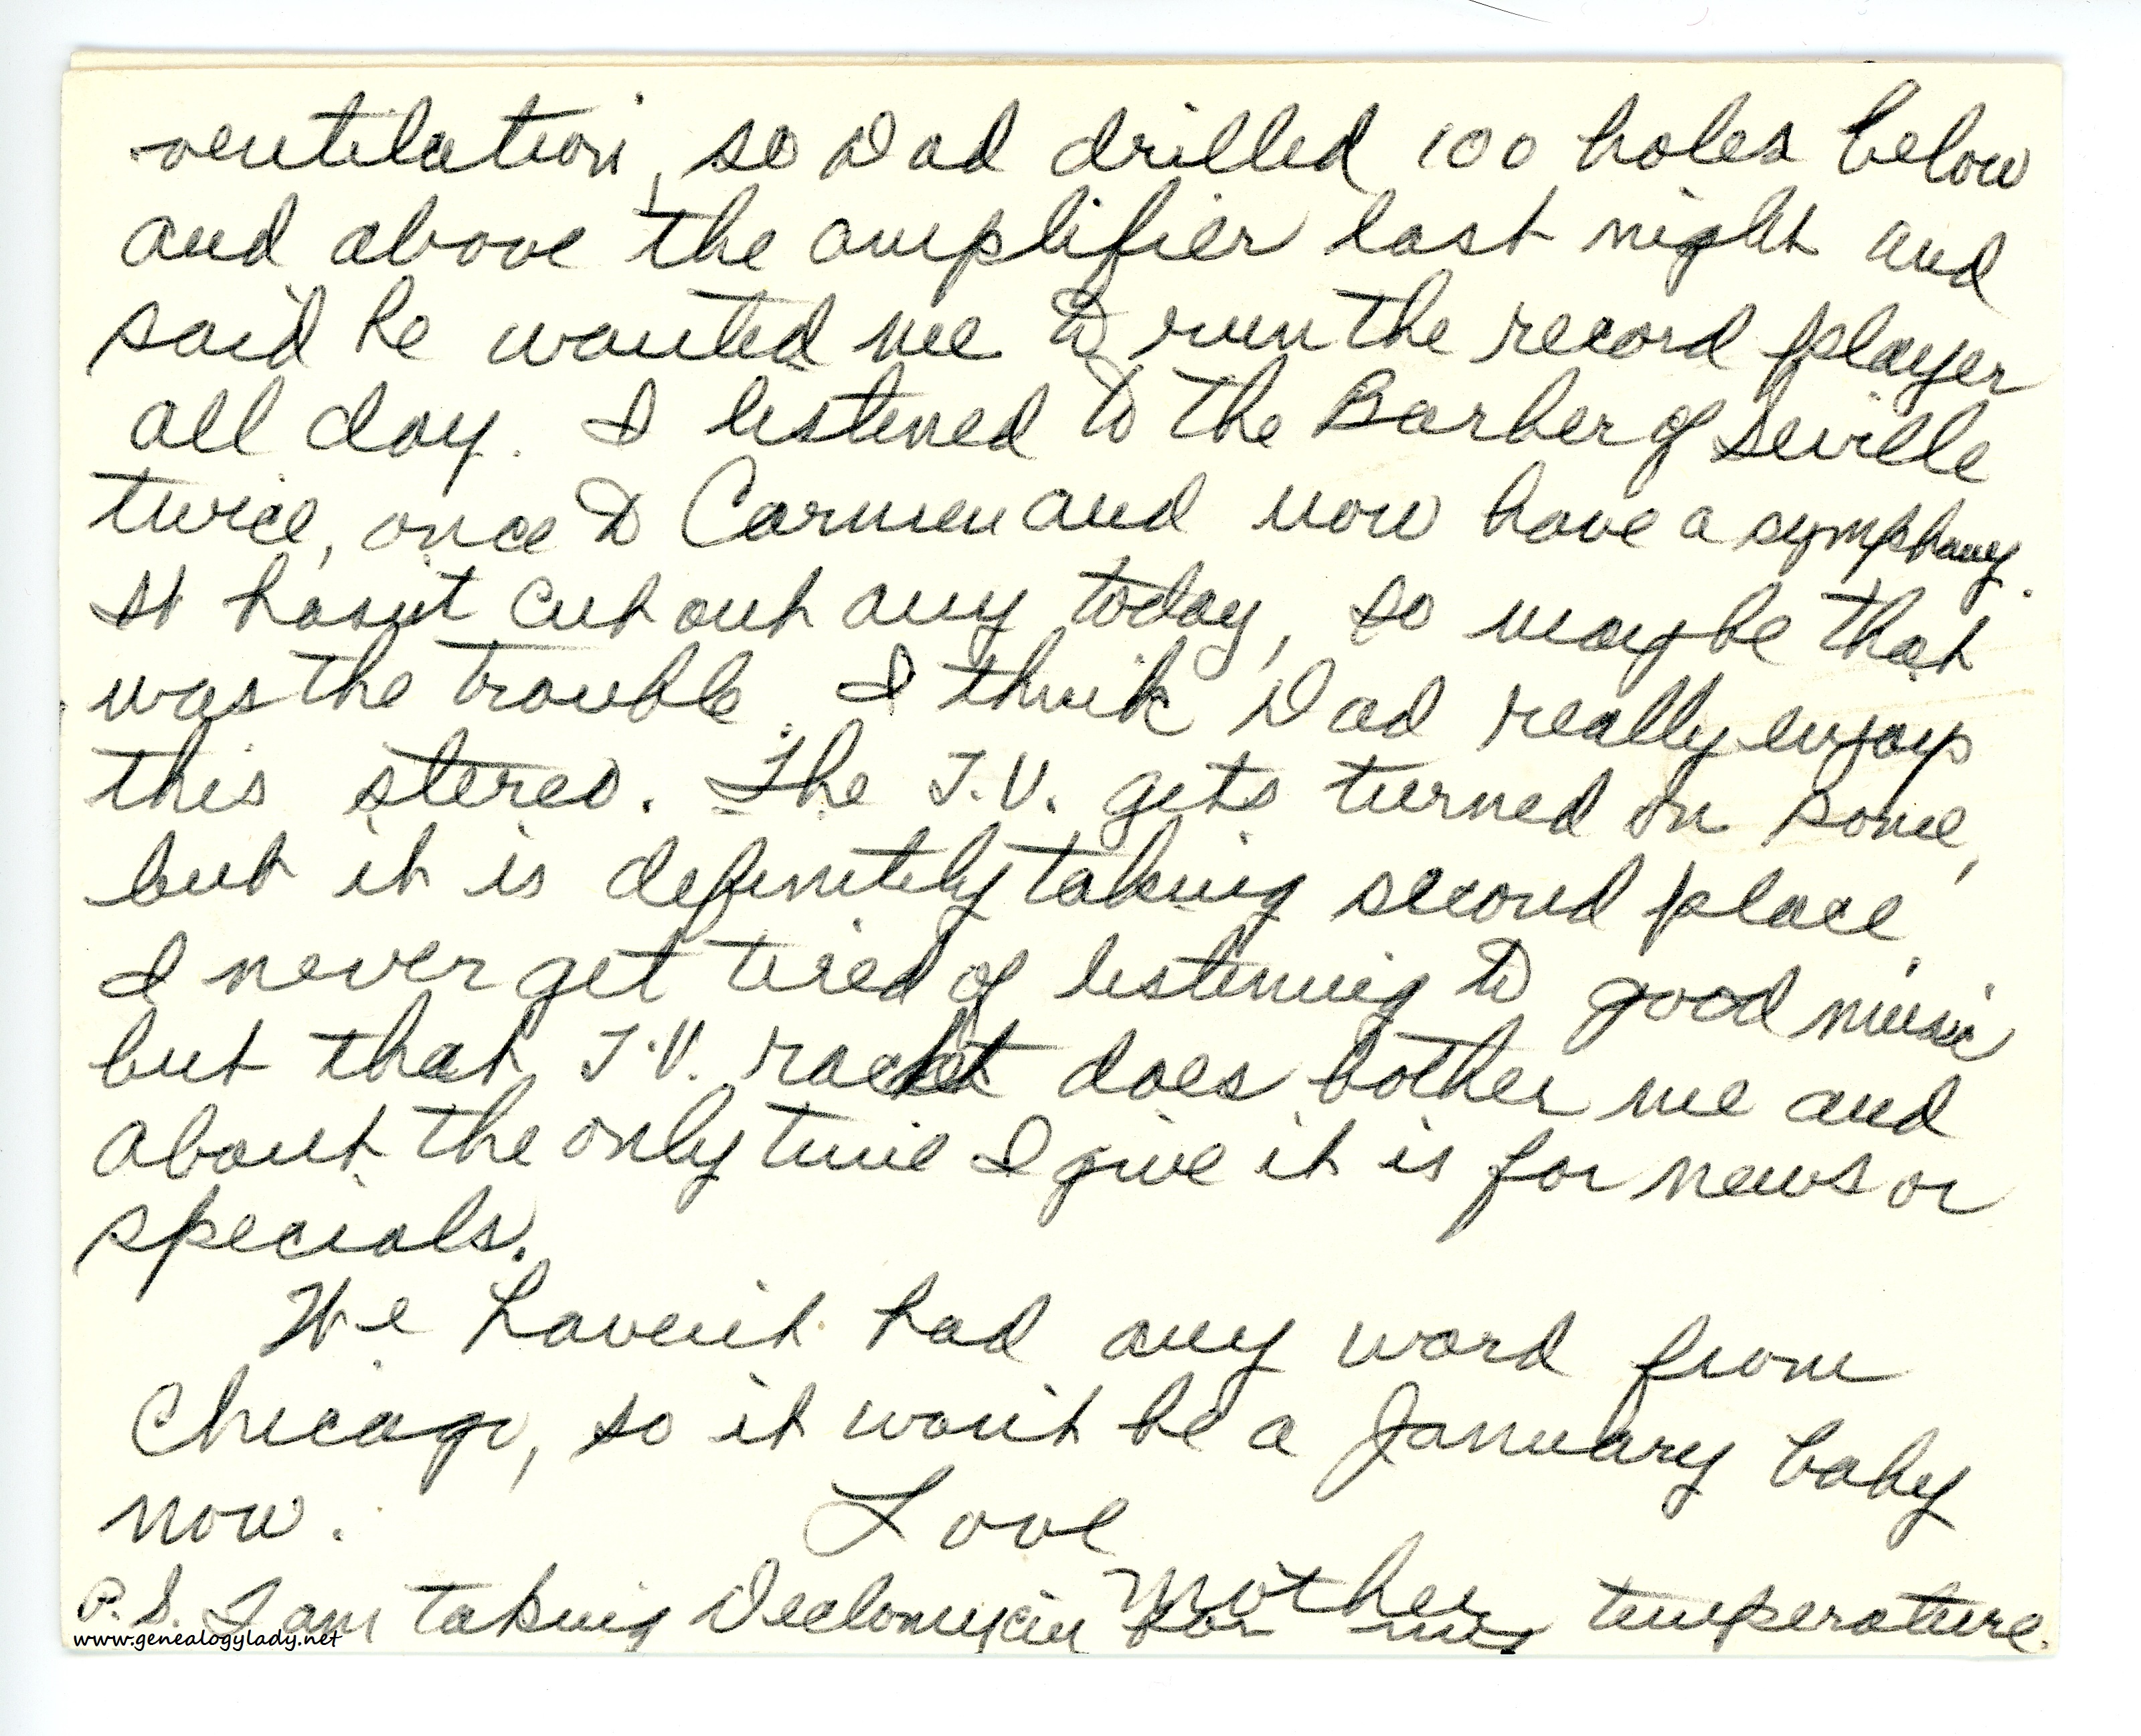 ventilation, so Dad drilled 100 holes below
and above the amplifier last night and
said he wanted me to run the record player
all day. I listened to the Barber of Seville
twice, once to Carmen and now have a symphony.
It hasn't cut out any today, so maybe that
was the trouble. I think Dad really enjoys
this stereo. The T.V. gets turned on some,
but it is definitely taking second place.
I never get tired of listening to good music
but that T.V. racket does bother me and
about the only time I give it is for news or
specials.
We haven't had any word from
Chicago, so it won't be a January baby
now. Love
Mother
P.S. I am taking Declomycin for my temperature.
www.genealogylady.net